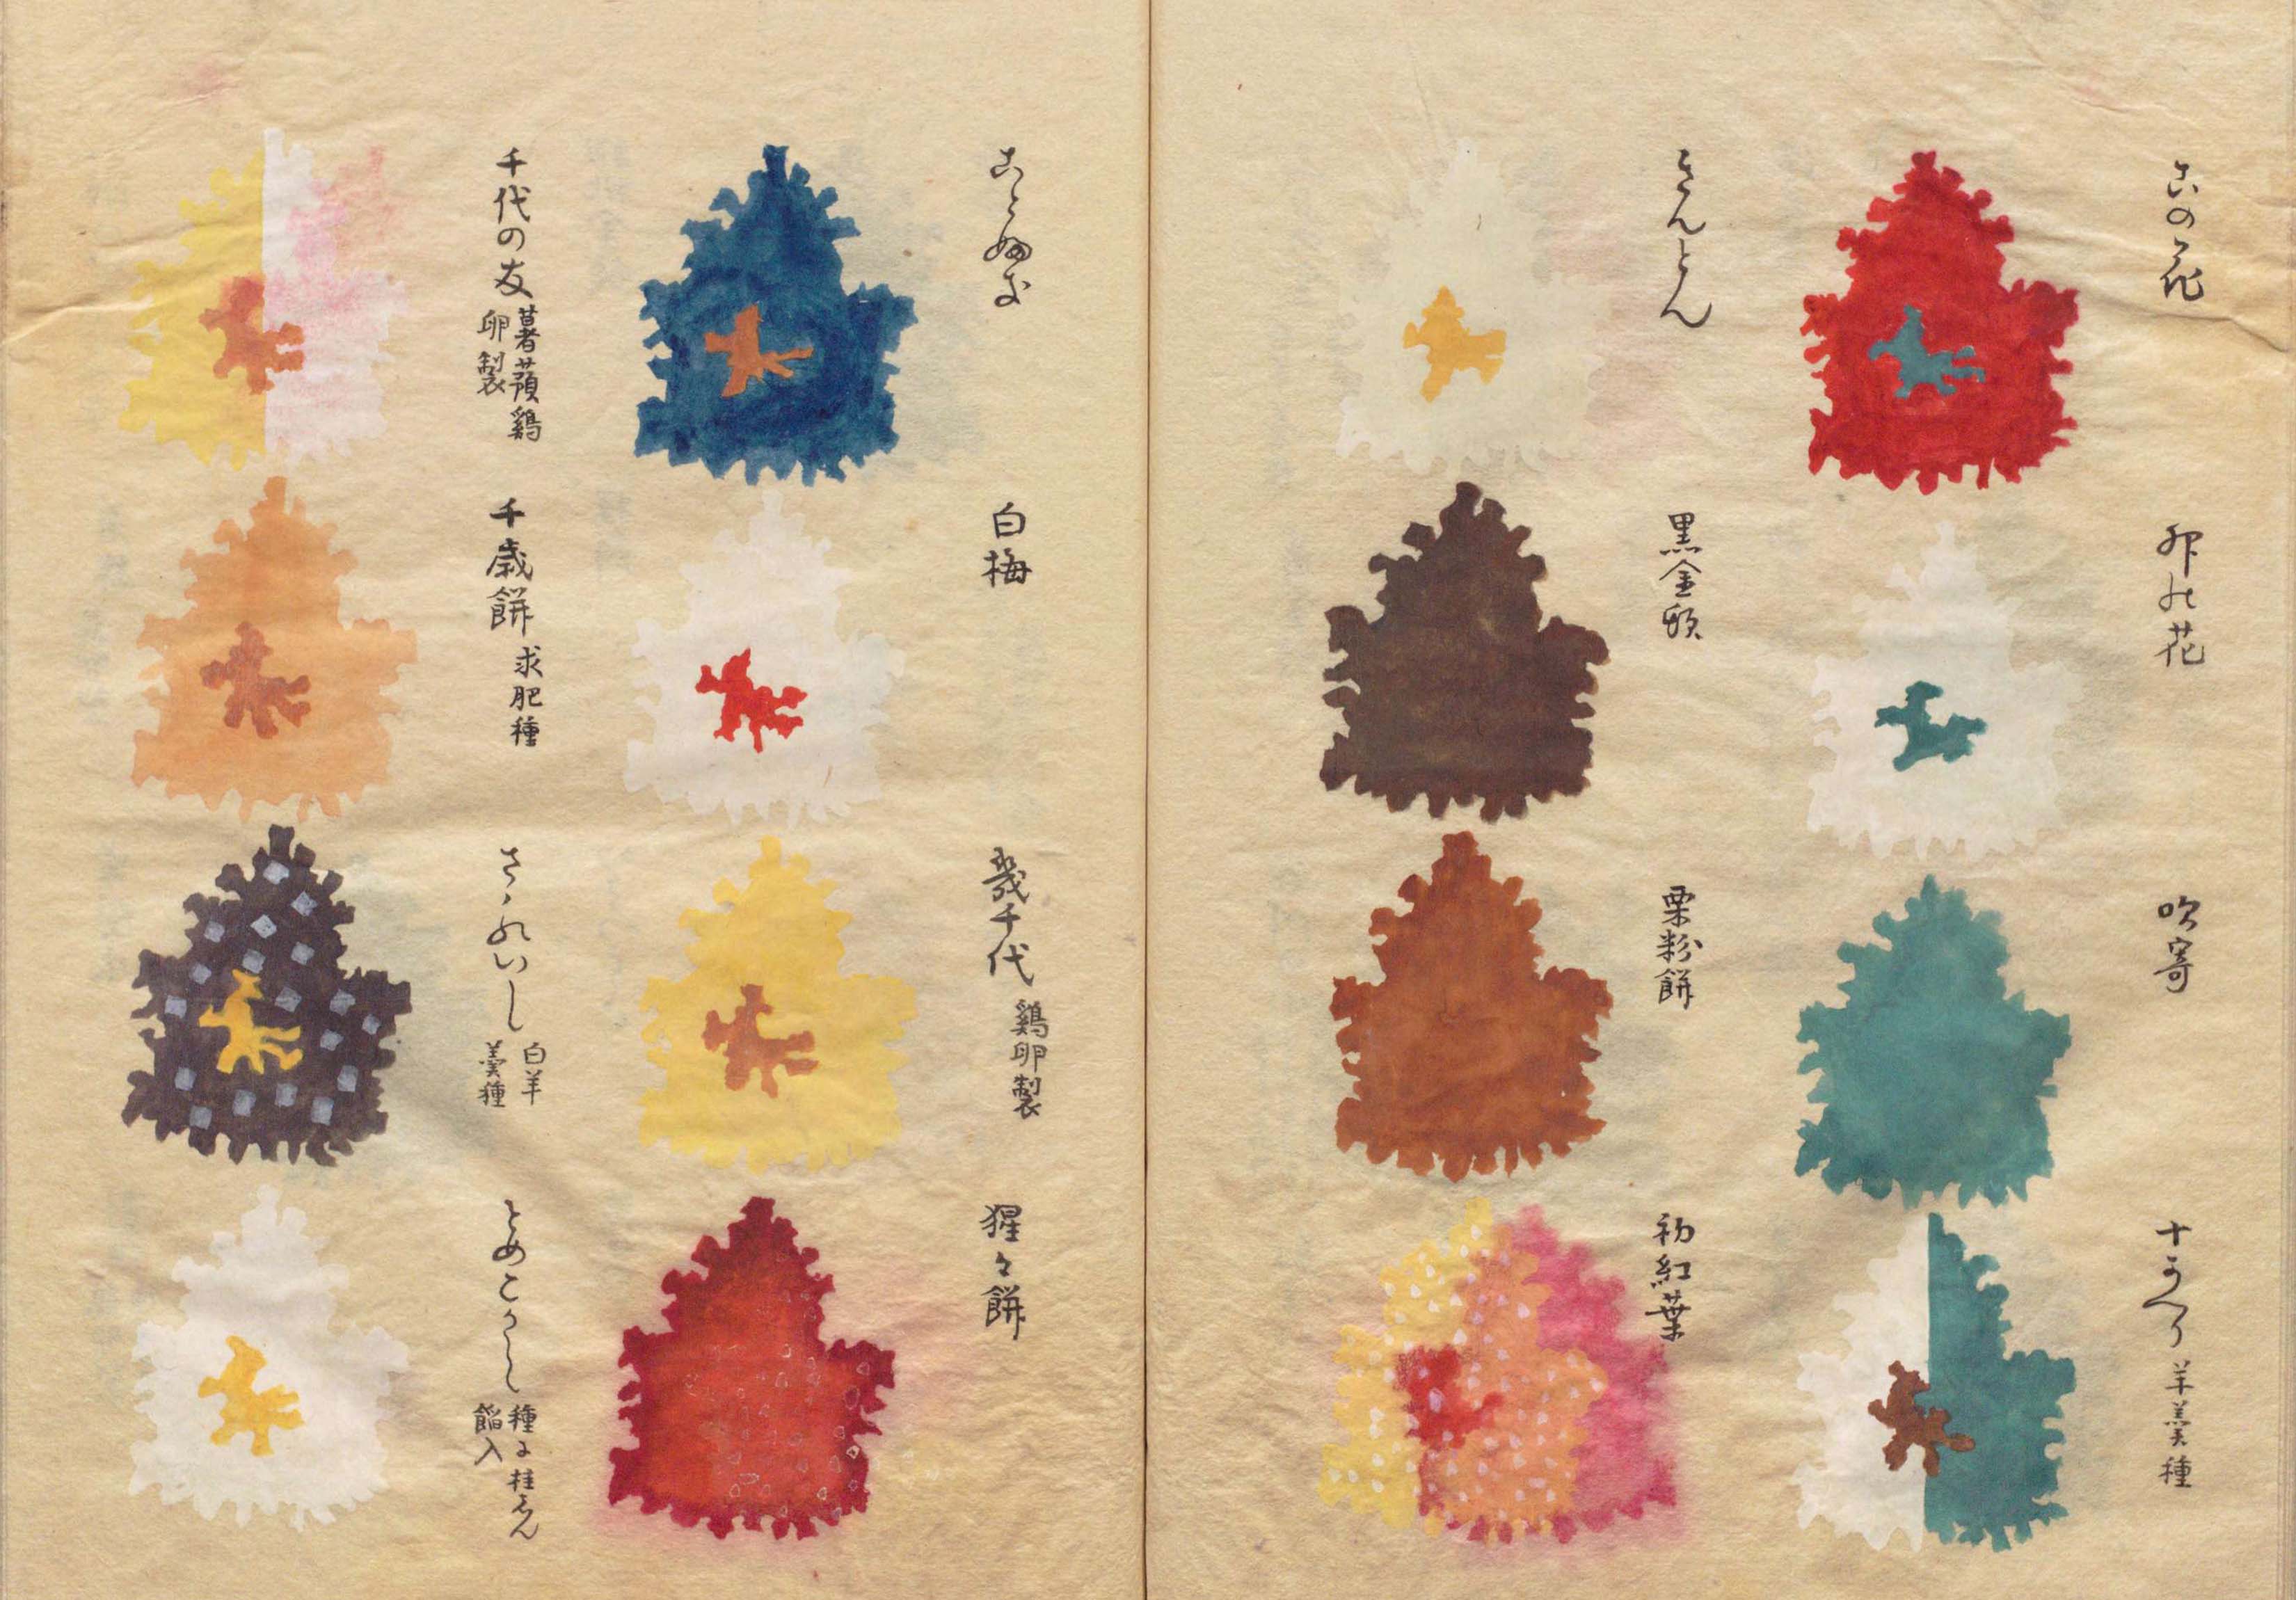 この花
卯の花
吹寄
十かへり 羊羹種
きんとん
黒金飩
栗粉餅
初紅葉
白梅
幾千代 鶏卵製
猩々餅
千代の友 薯蕷鶏卵製
千歳餅 求肥種
さゝれいし 白羊羹種
とめこかし 種に桂志ん餡入